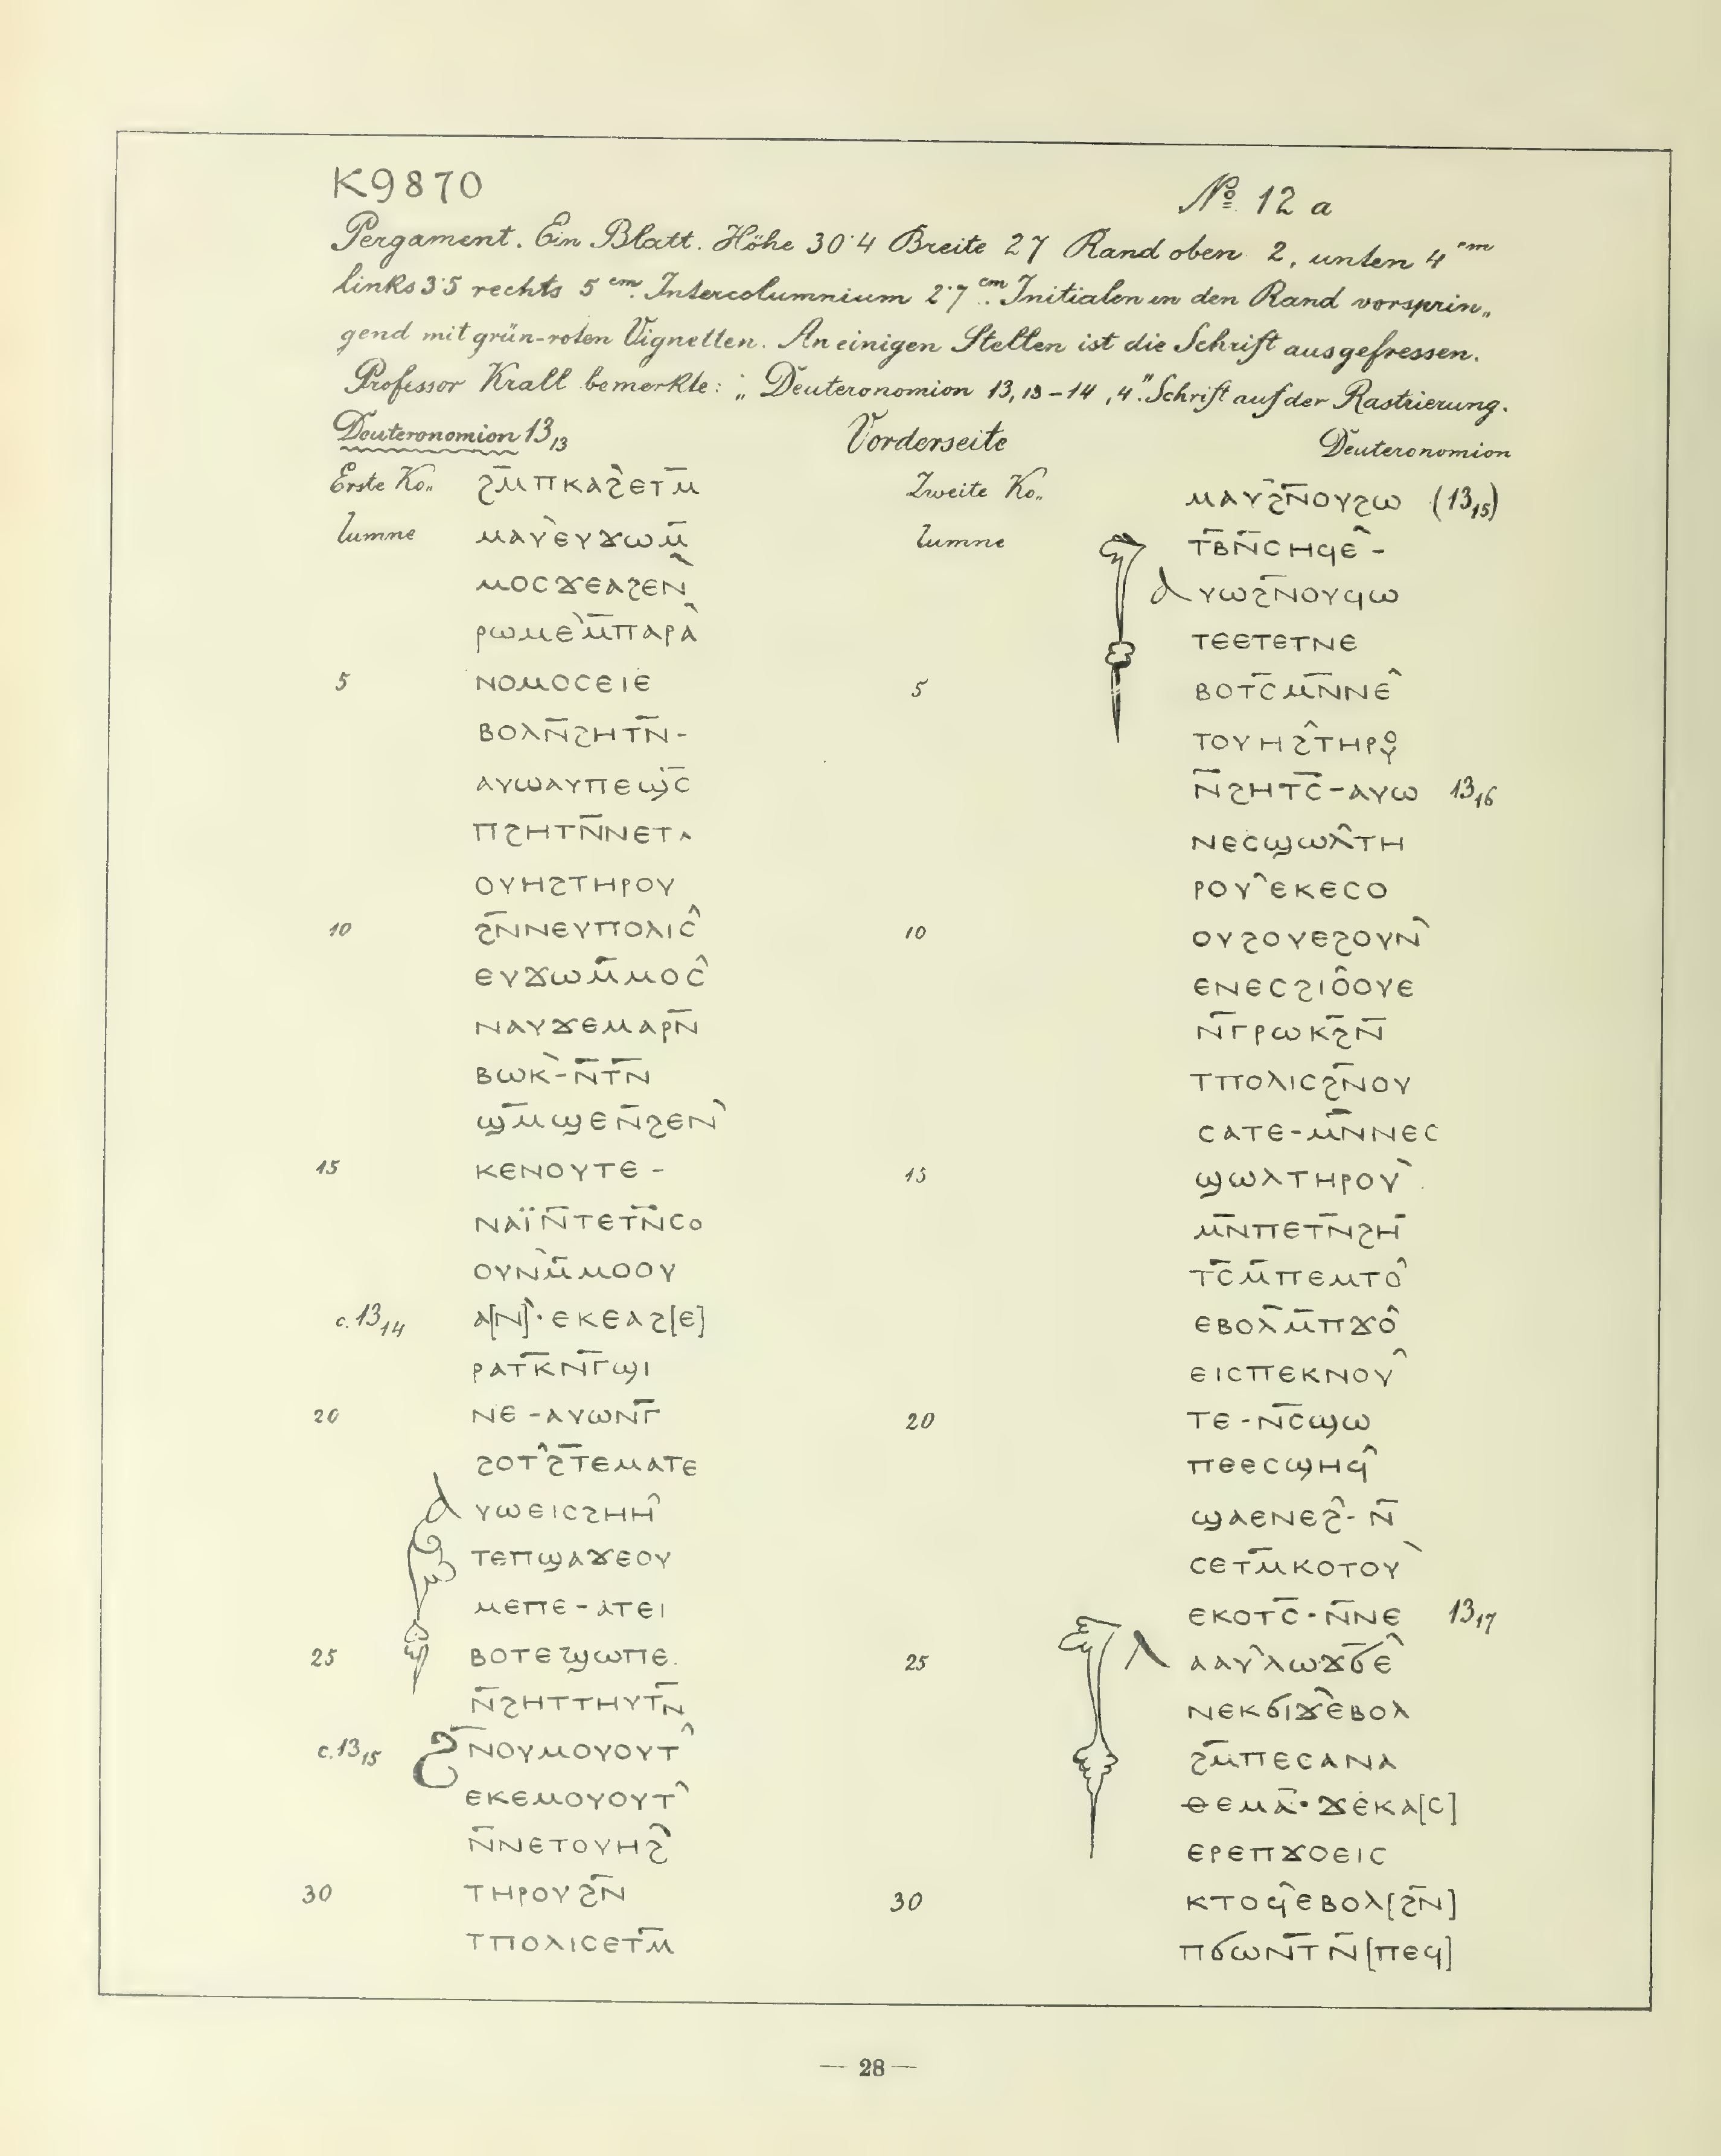 K9870
№ 12 a
Pergament. Ein Blatt. Höhe 30·4 Breite 27 Rand oben 2, unten 4 cm
links 3·5 rechts 5 cm. Intercolumnium 2·7 cm. Initialen in den Rand vorsprin„
gend mit grün-roten Vignetten. An einigen Stellen ist die Schrift ausgefressen.
Professor Krall bemerkte: „Deuteronomion 13,13-14,4." Schrift auf der Rastrierung.
Deuteronomion 13,13
Vorderseite
Deuteronomion
Erste Ko„
lumne
ϩ̄ⲙ̄ⲡⲕⲁϩ̀ⲉⲧⲙ̄
ⲙⲁⲩ̀ⲉⲩϫⲱⲙ̄
ⲙⲟⲥϫⲉⲁϩⲉⲛ̂
ⲣⲱⲙⲉ̀ⲙ̄ⲡⲁⲣⲁ̂
5 ⲛⲟⲙⲟⲥⲉⲓⲉ
ⲃⲟⲗⲛ̄ϩⲏⲧⲛ̄-
ⲁⲩⲱⲁⲩⲡⲉϣ̄ⲥ̄
ⲡϩⲏⲧⲛ̄ⲛⲉⲧ^
ⲟⲩⲏϩⲧⲏⲣⲟⲩ
10 ϩ̄ⲛⲛⲉⲩⲡⲟⲗⲓⲥ̂
ⲉⲩϫⲱⲙ̄ⲙⲟⲥ̂
ⲛⲁⲩϫⲉⲙⲁⲣⲛ̄
ⲃⲱⲕ̀-ⲛ̄ⲧ̄ⲛ
ϣ̄ⲙϣⲉⲛ̄ϩⲉⲛ̀
15 ⲕⲉⲛⲟⲩⲧⲉ-
ⲛⲁⲓ̈ⲛ̄ⲧⲉⲧⲛ̄ⲥⲟ
ⲟⲩⲛ̀ⲙ̄ⲙⲟⲟⲩ
c. 13,14 ⲁ[ⲛ]̀·ⲉⲕⲉⲁϩ[ⲉ]
ⲣⲁⲧ̄ⲕⲛ̄ⲅϣⲓ
20 ⲛⲉ-ⲁⲩⲱⲛⲅ̄
ϩⲟⲧ̂ϩ̄ⲧⲉⲙⲁⲧⲉ
ⲁⲩⲱⲉⲓⲥϩⲏⲏ̂
ⲧⲉⲡϣⲁϫⲉⲟⲩ
ⲙⲉⲡⲉ-ⲁⲧⲉⲓ
25 ⲃⲟⲧⲉϣⲱⲡⲉ.
ⲛ̄ϩⲏⲧⲧⲏⲩⲧⲛ̄
c. 13,15 ϩ̄ⲛⲟⲩⲙⲟⲩⲟⲩⲧ̂
ⲉⲕⲉⲙⲟⲩⲟⲩⲧ̂
ⲛ̄ⲛⲉⲧⲟⲩⲏϩ̂
30 ⲧⲏⲣⲟⲩϩ̄ⲛ
ⲧⲡⲟⲗⲓⲥⲉⲧⲙ̄
Zweite Ko„
lumne
ⲙⲁⲩ̀ϩ̄ⲛⲟⲩϩⲱ (13,15)
ⲧ̄ⲃⲛ̄ⲥⲏϥⲉ̂-
ⲁⲩⲱϩ̄ⲛⲟⲩϥⲱ
ⲧⲉⲉⲧⲉⲧⲛⲉ
5 ⲃⲟⲧ̄ⲥⲙ̄ⲛⲛⲉ̂
ⲧⲟⲩⲏϩ̂ⲧⲏⲣⲟⲩ
ⲛ̄ϩⲏⲧ̄ⲥ-ⲁⲩⲱ 13,16
ⲛⲉⲥϣⲱⲗ̂ⲧⲏ
ⲣⲟⲩ̂ⲉⲕⲉⲥⲟ
10 ⲟⲩϩⲟⲩⲉϩⲟⲩⲛ̂
ⲉⲛⲉⲥϩⲓⲟ̂ⲟⲩⲉ
ⲛ̄ⲅⲣⲱⲕϩ̄ⲛ̄
ⲧⲡⲟⲗⲓⲥϩ̄ⲛⲟⲩ
ⲥⲁⲧⲉ-ⲙ̄ⲛⲛⲉⲥ
15 ϣⲱⲗⲧⲏⲣⲟⲩ̀
ⲙ̄ⲛⲡⲉⲧⲛ̄ϩⲏ̄
ⲧ̄ⲥⲙ̄ⲡⲉⲙⲧⲟ̂
ⲉⲃⲟⲗ̀ⲙ̄ⲡϫⲟ̂
ⲉⲓⲥⲡⲉⲕⲛⲟⲩ̂
20 ⲧⲉ-ⲛ̄ⲥϣⲱ
ⲡⲉⲉⲥϣⲏϥ̂
ϣⲁⲉⲛⲉϩ̂-ⲛ̄
ⲥⲉⲧⲙ̄ⲕⲟⲧⲟⲩ̀
ⲉⲕⲟⲧⲥ̄·ⲛ̄ⲛⲉ 13,17
25 ⲗⲁⲁⲩ̀ⲗⲱϫ̄ϭⲉ̂
ⲛⲉⲕϭⲓϫ̀ⲉⲃⲟⲗ
ϩ̄ⲙⲡⲉⲥⲁⲛⲁ
ⲑⲉⲙⲁ̄·ϫⲉⲕⲁ[ⲥ]
ⲉⲣⲉⲡϫⲟⲉⲓⲥ
30 ⲕⲧⲟϥ̀ⲉⲃⲟⲗ[ϩ̄ⲛ]
ⲡϭⲱⲛ̄ⲧⲛ̄[ⲡⲉϥ]
— 28 —